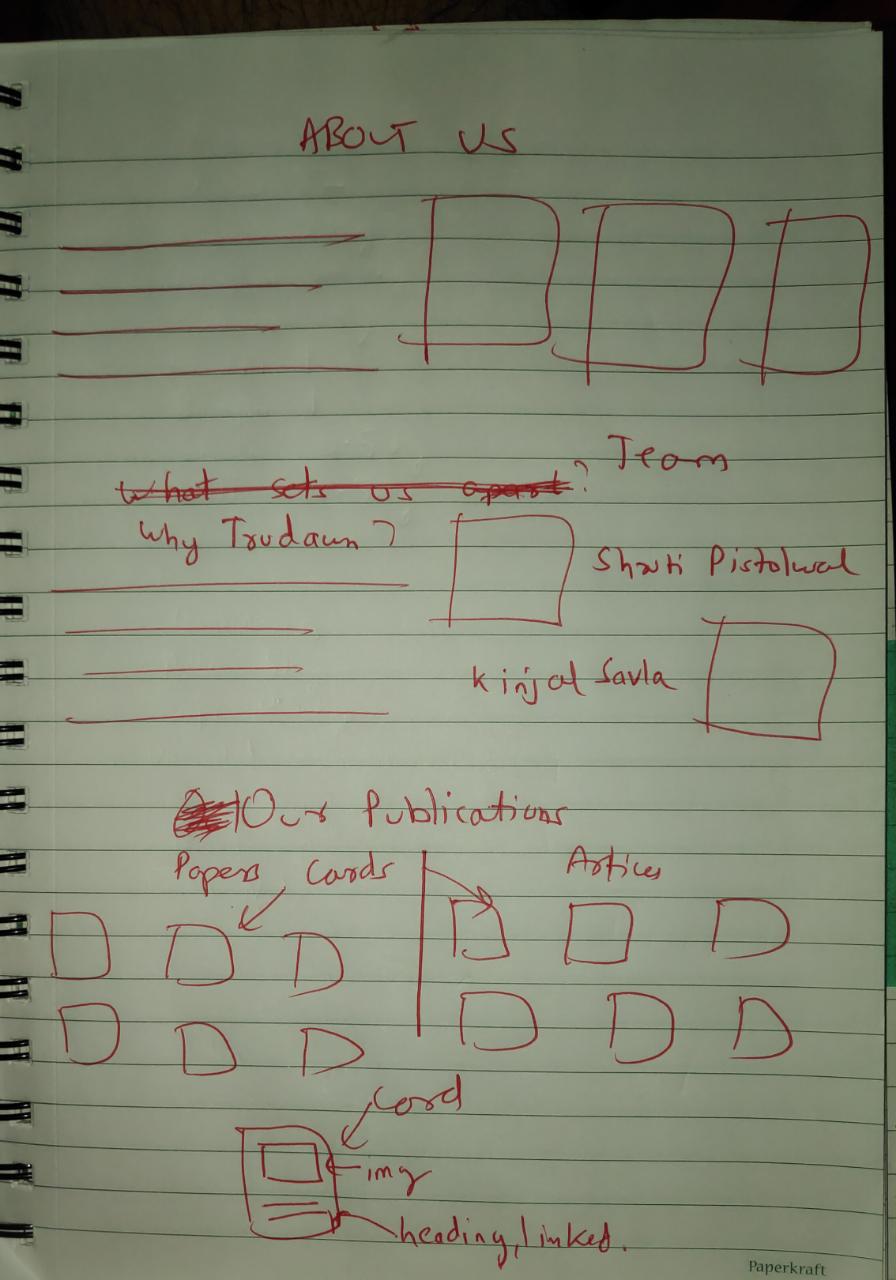 ABOUT US
What sets us apart?
Team
Why Trudawn?
Shruti Pistolwal
Kinjal Savla
Our Publications
Papers Cards
Artices
Card
img
heading, linked.
Paperkraft